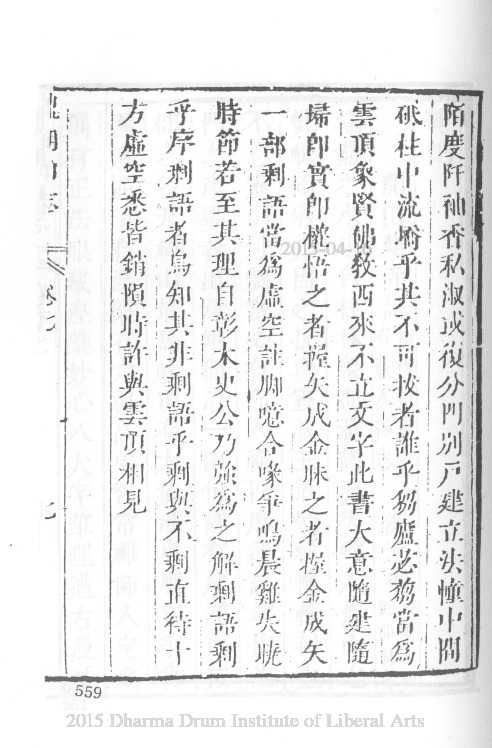 陌度阡袖香私淑或復分門別戶建立法幢中間
砥柱中流嶠乎其不可拔者誰乎芻廬苾芻當為
雲頂象賢佛教西來不立文字此書大意隨建隨
埽即實即權悟之者握矢成金昧之者握金成矢
一部剩語當為虛空註腳噫合喙爭鳴晨雞失曉
時節若至其理自彰木叟公乃強為之解剩語剩
乎序剩語者烏知其非剩語乎剩與不剩直待十
方虛空悉皆銷隕時許與雲頂相見
卷七
七
559
2019-04-
2015 Dharma Drum Institute of Liberal Arts